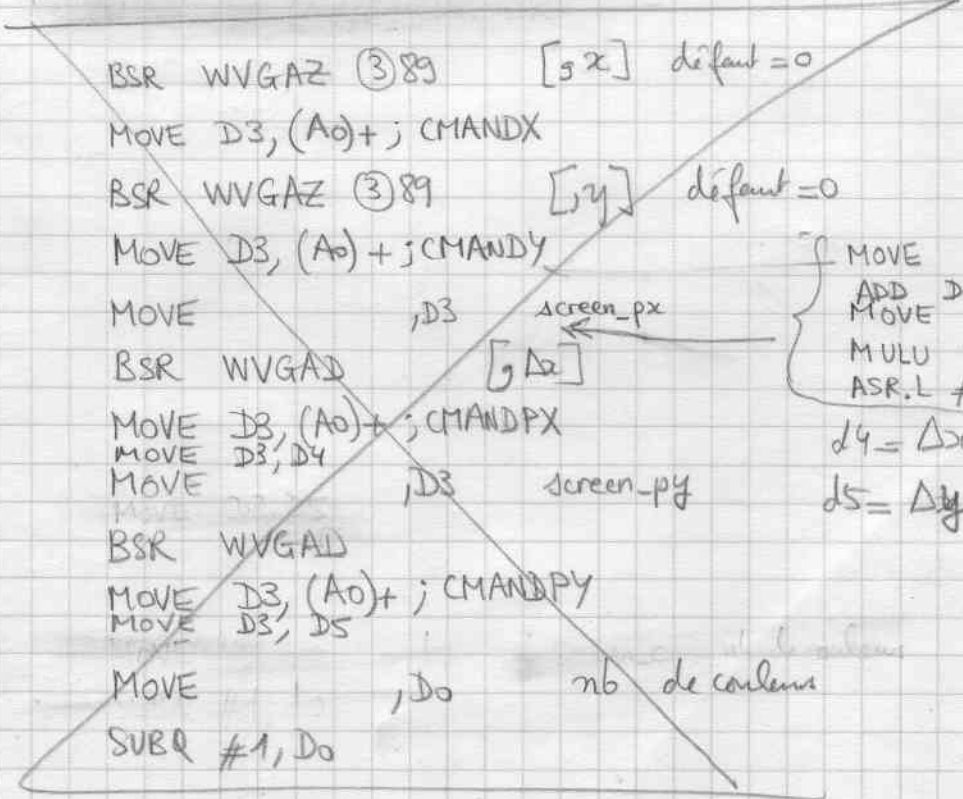 BSR WVGAZ ③89 [,x] défaut =0
MOVE D3, (A0)+ ; CMANDX
BSR WVGAZ ③89 [,y] défaut =0
MOVE D3, (A0)+ ; CMANDY
MOVE ,D3 screen_px
BSR WVGAD [,Δx]
MOVE D3, (A0)+ ; CMANDPX
MOVE D3, D4
MOVE ,D3 screen_py
BSR WVGAD
MOVE D3, (A0)+ ; CMANDPY
MOVE D3, D5
MOVE ,D0 nb de couleurs
SUBQ #1, D0
MOVE
ADD D
MOVE
MULU
ASR.L #
d4 = Δx
d5 = Δy